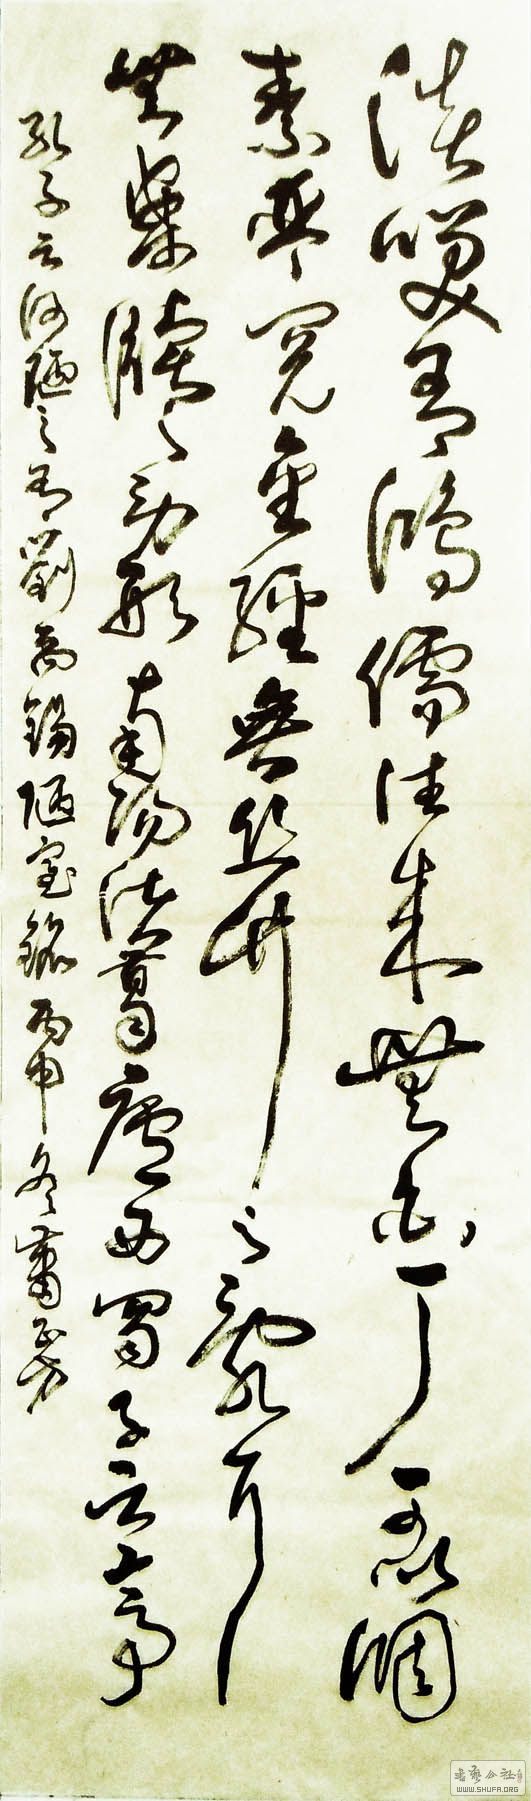 談笑有鴻儒往來無白丁可以調
素琴閱金經無絲竹之亂耳
無案牘之勞形南陽諸葛廬西蜀子云亭
孔子云何陋之有劉禹錫陋室銘丙申冬
WWW.SHUFA.ORG